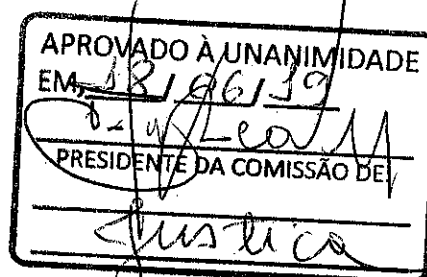 APROVADO À UNANIMIDADE
EM, 18 / 06 / 19
PRESIDENTE DA COMISSÃO DE
Justiça